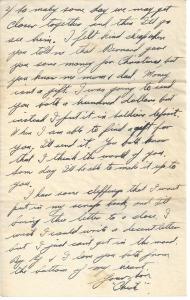 & to maby some day we may get
closer together and then I'll go
see him. I felt kind of
you told me that Bernard gave
you some money for Christmas but
you know me mom & dad. Money
isn't a gift. I was going to send
you both a hundred dollars but
instead I put it in
When I am able to find a gift for
you, I'll send it. You both know
that I think the world of you.
Some day I'll be able to make it up to
you.
I have some clippings that I want
put in my scrap book and I'll
bring this letter to a close. I
wish I could write a decent letter
but I just can't get in the mood.
I love you both from
the bottom of my heart.
Your Son